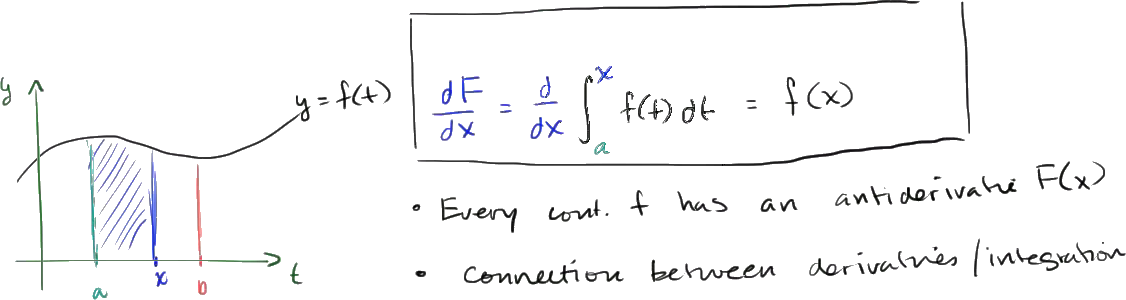 y
y = f(t)
a
x
b
t
dF/dx = d/dx ∫_a^x f(t) dt = f(x)
• Every cont. f has an antiderivative F(x)
• Connection between derivatives/integration